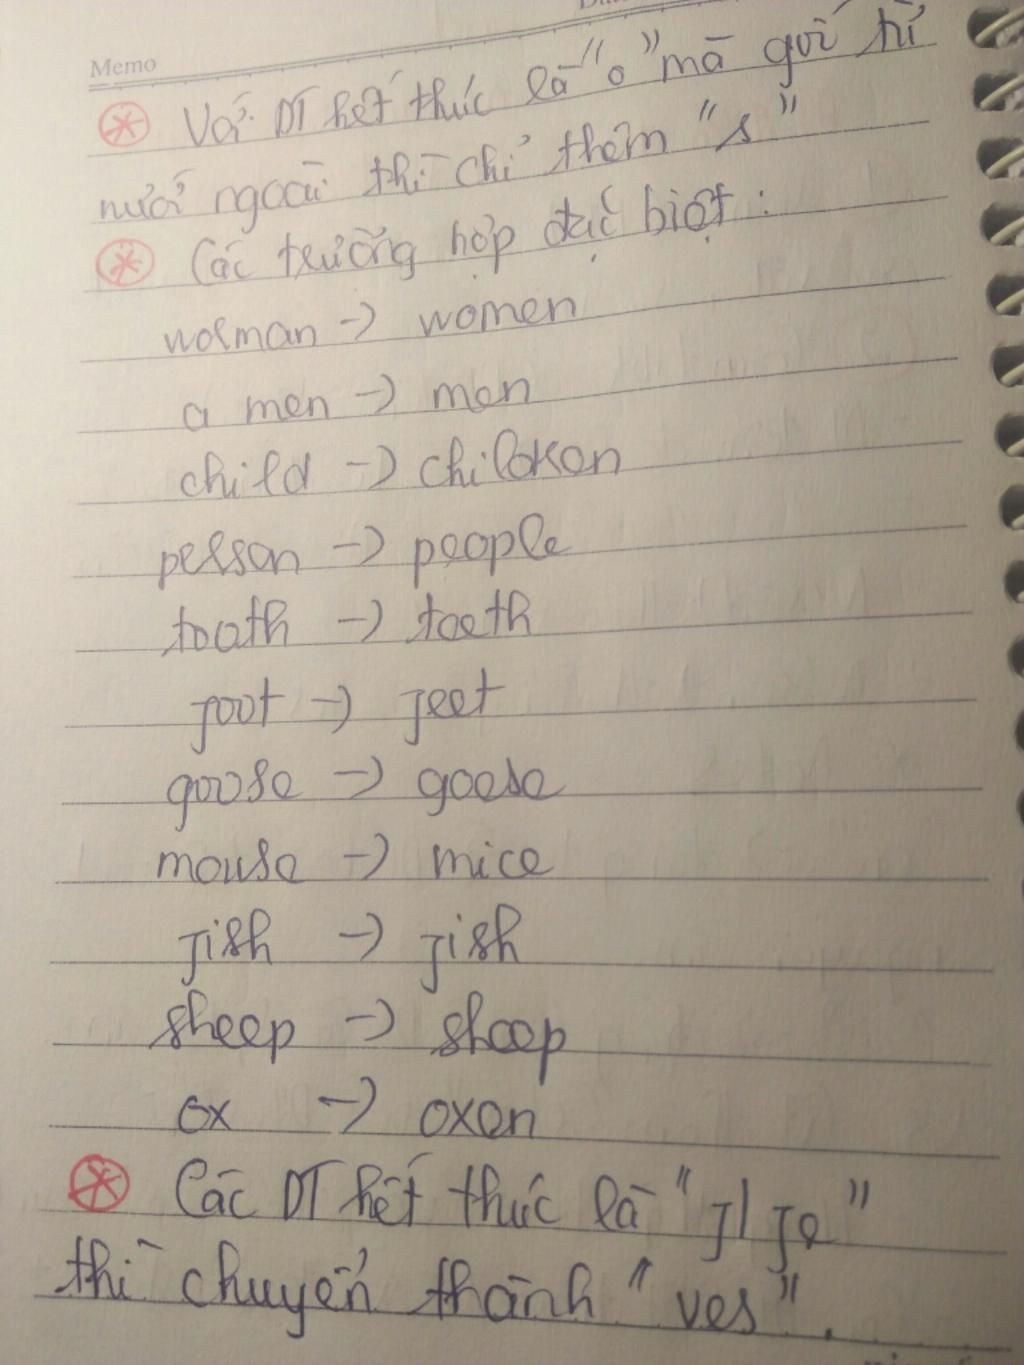 Memo
Với DT hết thúc là "o" mà gốc từ
nước ngoài thì chỉ thêm "s"
Các trường hợp đặc biệt :
woman -> women
a men -> men
child -> children
person -> people
tooth -> teeth
foot -> feet
goose -> geese
mouse -> mice
fish -> fish
sheep -> sheep
ox -> oxen
Các DT hết thúc là "f/fe"
thì chuyển thành "ves".